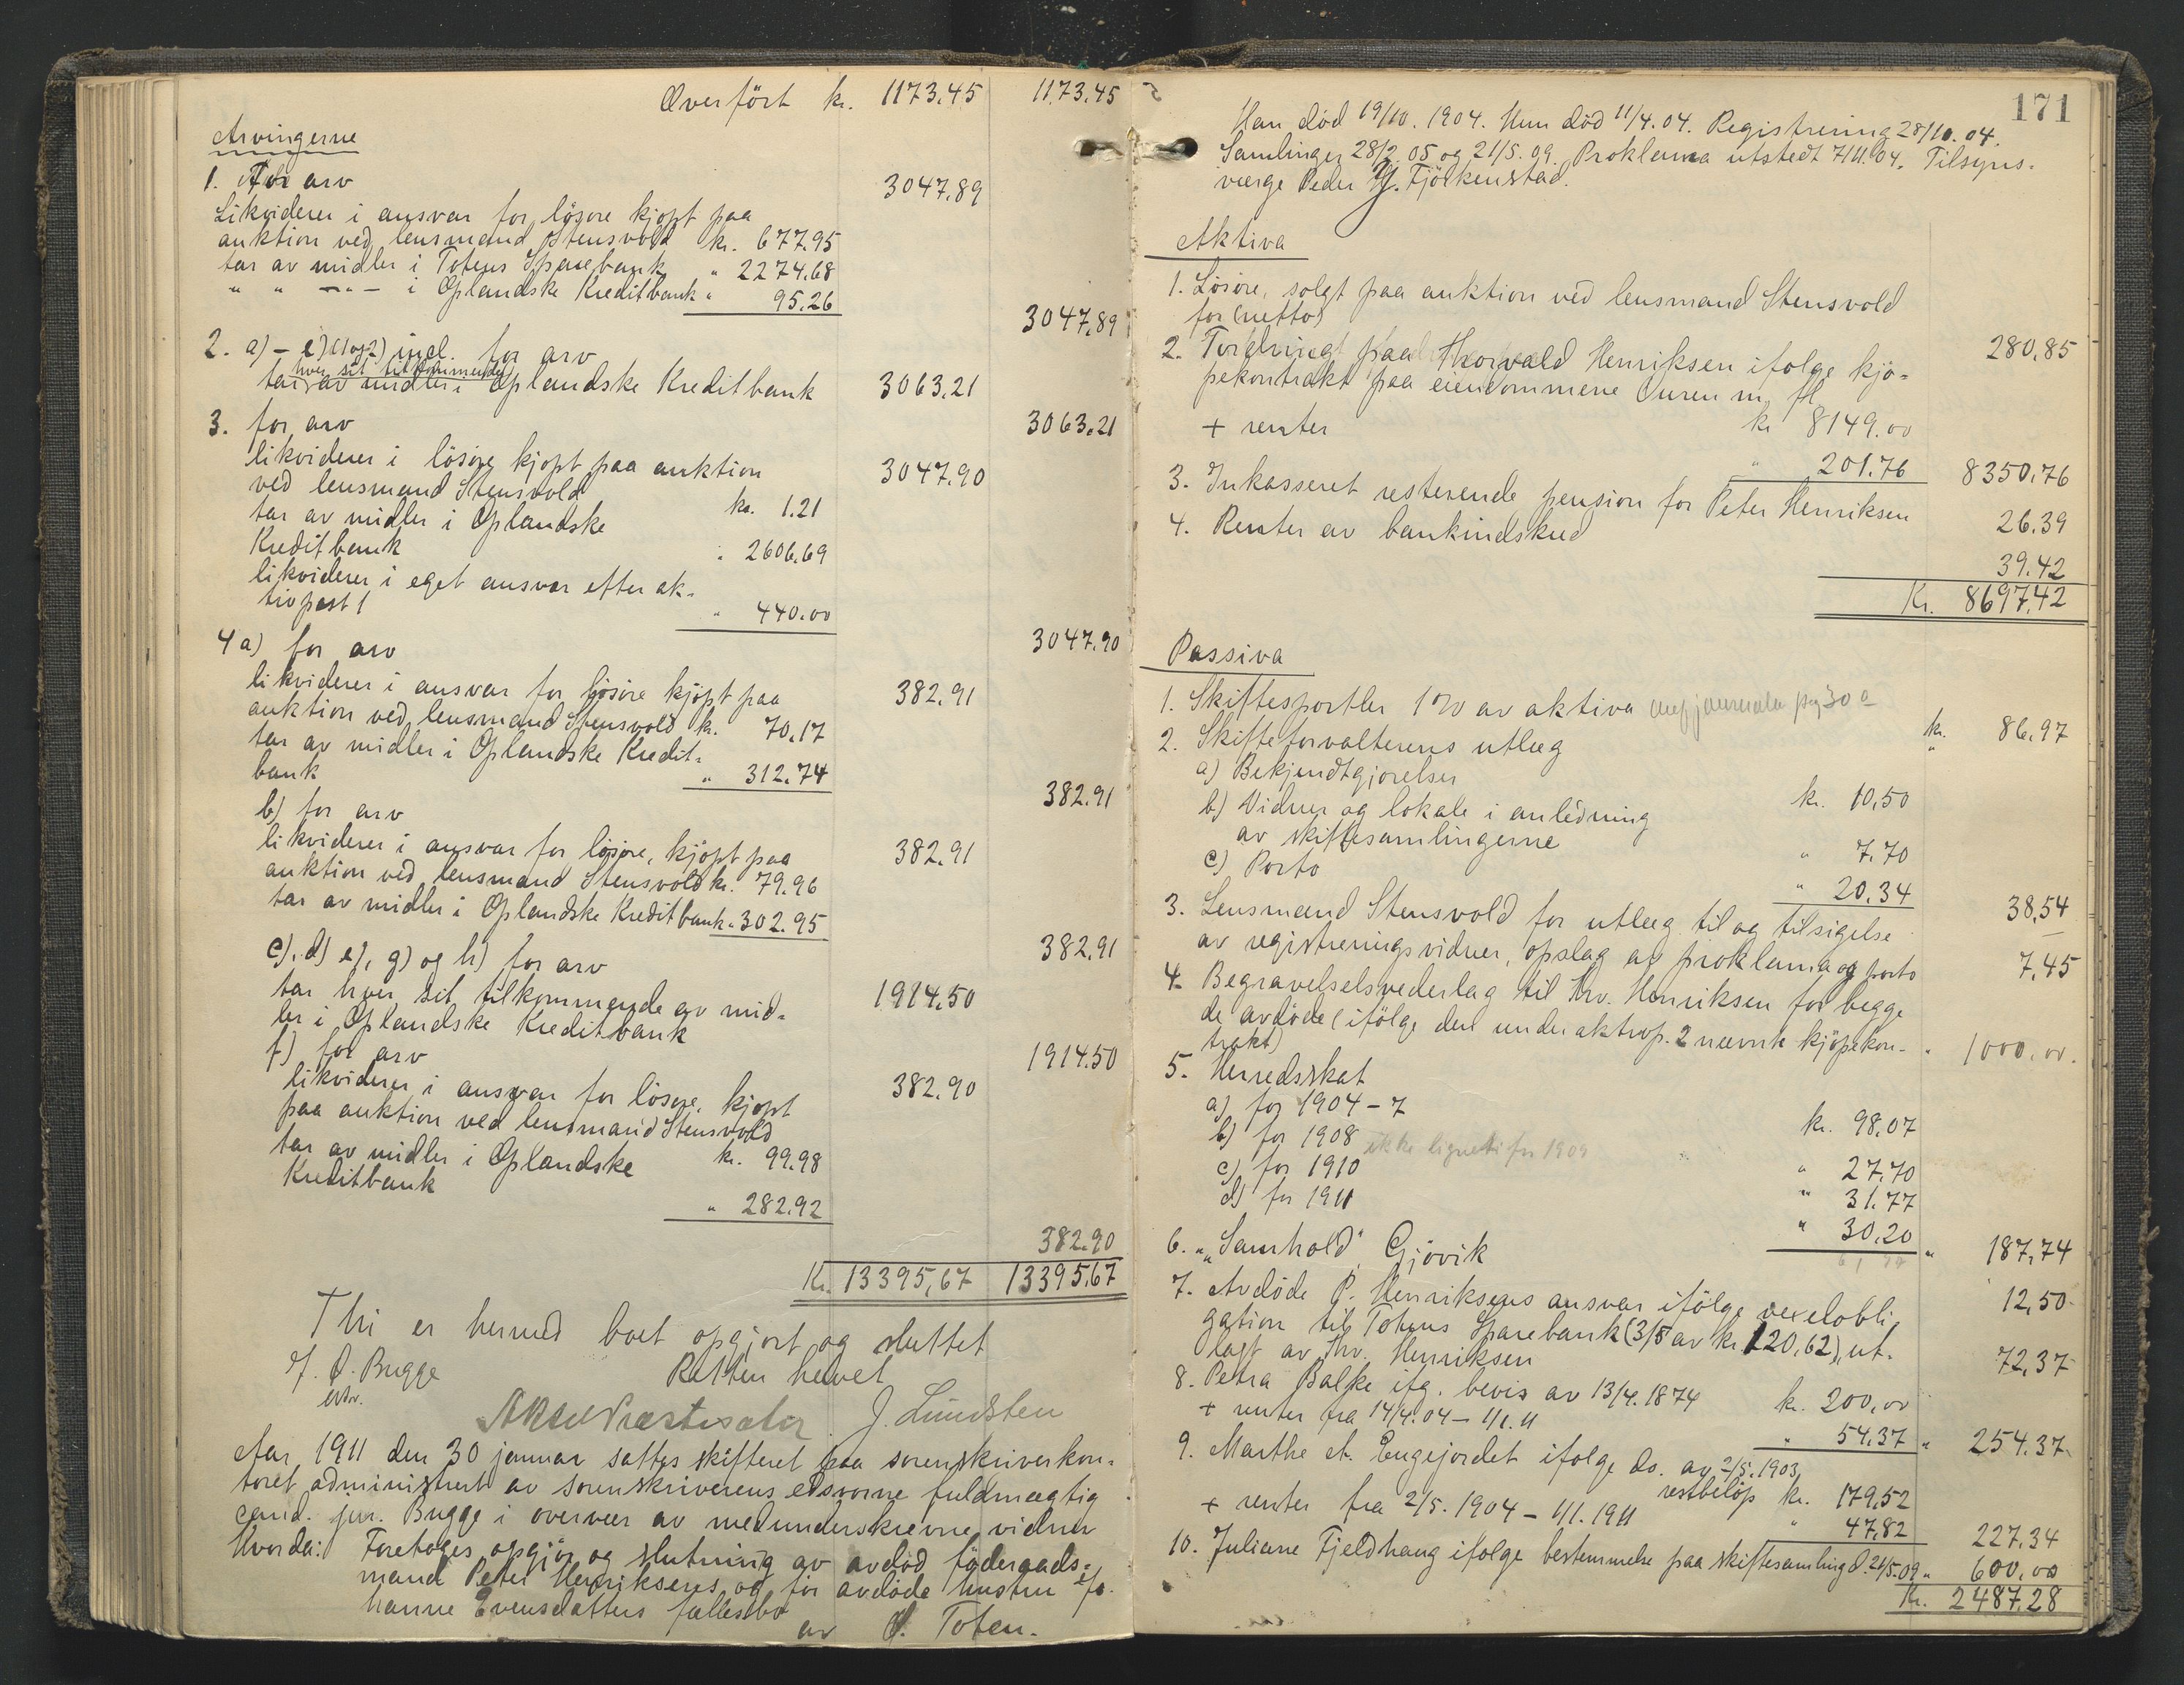 Overført kr. 1173.45 1173.45
Arvingerne
1. For arv 3047.89
Likviderer i ansvar for løsøre kjøpt paa
auktion ved lensmand Stensvold kr. 677.95
tar av midler i Totens Sparebank " 2274.68
" " —"— i Oplandske Kreditbank " 95.26
3047.89
2. a) – e) (1 og 2) incl. for arv 3063.21
hver sit tilkommende
tar av midler i Oplandske Kreditbank
3063.21
3. for arv 3047.90
likviderer i løsøre kjøpt paa auktion
ved lensmand Stensvold kr. 1.21
tar av midler i Oplandske
Kreditbank " 2606.69
likviderer i eget ansvar efter ak-
tivpost 1 " 440.00
3047.90
4 a) for arv 382.91
likviderer i ansvar for løsøre kjøpt paa
auktion ved lensmand Stensvold kr. 70.17
tar av midler i Oplandske Kredit-
bank " 312.74
382.91
b) for arv 382.91
likviderer i ansvar for løsøre, kjøpt paa
auktion ved lensmand Stensvold kr. 79.96
tar av midler i Oplandske Kreditbank " 302.95
382.91
c), d) e), g) og h) for arv 1914.50
tar hver sit tilkommende av mid-
ler i Oplandske Kreditbank
1914.50
f) for arv 382.90
likviderer i ansvar for løsøre, kjøpt
paa auktion ved lensmand Stensvold
kr. 99.98
tar av midler i Oplandske
Kreditbank " 282.92
382.90
Kr. 13395,67 13395.67
Thi er hermed boet opgjort og sluttet
Retten hævet
J. O. Bugge
edsv.
J. Lundsten
Aar 1911 den 30 januar sattes skifteret paa sorenskriverkon-
toret administrert av sorenskriverens edsvorne fuldmægtig
cand. jur. Bugge i overvær av medunderskrevne vidner
Hvorda: Foretoges opgjør og slutning av avdød føderaads-
mand Peter Henriksens og før avdøde hustru Jo-
hanne Evensdatters fællesbo
av Ø. Toten.
171
Han død 19/10. 1904. Hun død 11/4. 04. Registrering 28/10. 04.
Samlinger 28/2. 05 og 21/5. 09. Proklama utstedt 7/11. 04. Tilsyns-
værge Peder Fjørkenstad.
Aktiva
1. Løsøre, solgt paa auktion ved lensmand Stensvold
for (netto) 280,85
2. Fordringt paa Thorvald Henriksen ifølge kjø-
pekontrakt paa eiendommene Ouren m. fl.
kr 8149.00
+ renter " 201.76 8350,76
3. Inkasseret resterende pension for Peter Henriksen 26.39
4. Renter av bankindskud 39.42
Kr. 8697,42
Passiva
1. Skiftesportler 1 % av aktiva kr. 86,97
2. Skifteforvalterens utlæg
a) Bekjendtgjørelser kr. 10,50
b) Vidner og lokale i anledning
av skiftesamlingerne " 7.70
c) Porto " 20.34 38,54
3. Lensmand Stensvold for utlæg til og tilsigelse
av registreringsvidner, opslag av proklama og porto 7,45
4. Begravelsesvederlag til Thv. Henriksen for begge
de avdøde (ifølge den under aktivp. 2 nævnte kjøpekon-
trakt) " 1000,00.
5. Herredsskat
a) for 1904 – 7 kr. 98.07
b) for 1908 ikke lignet for 1909 " 27.70
c) for 1910 " 31.77
d) for 1911 " 30,20 " 187,74
6. "Samhold", Gjøvik 12,50
7. Avdøde P. Henriksens ansvar ifølge vexelobli-
gation til Totens Sparebank (3/5 av kr. 120,62), ut-
lagt av Thv. Henriksen 72,37
8. Petra Balke ifg. bevis av 13/4. 1874 kr. 200,00
+ renter fra 14/4. 04 – 1/1. 11 " 54.37 " 254.37
9. Marthe A. Engejordet ifølge do. av 2/5. 1903
restbeløp kr. 179,52
+ renter fra 2/5. 1904 – 1/1. 1911 " 47,82 227,34
10. Juliane Fjeldhaug ifølge bestemmelse paa skiftesamling d. 21/5. 09 " 600,00
Kr. 2487,28